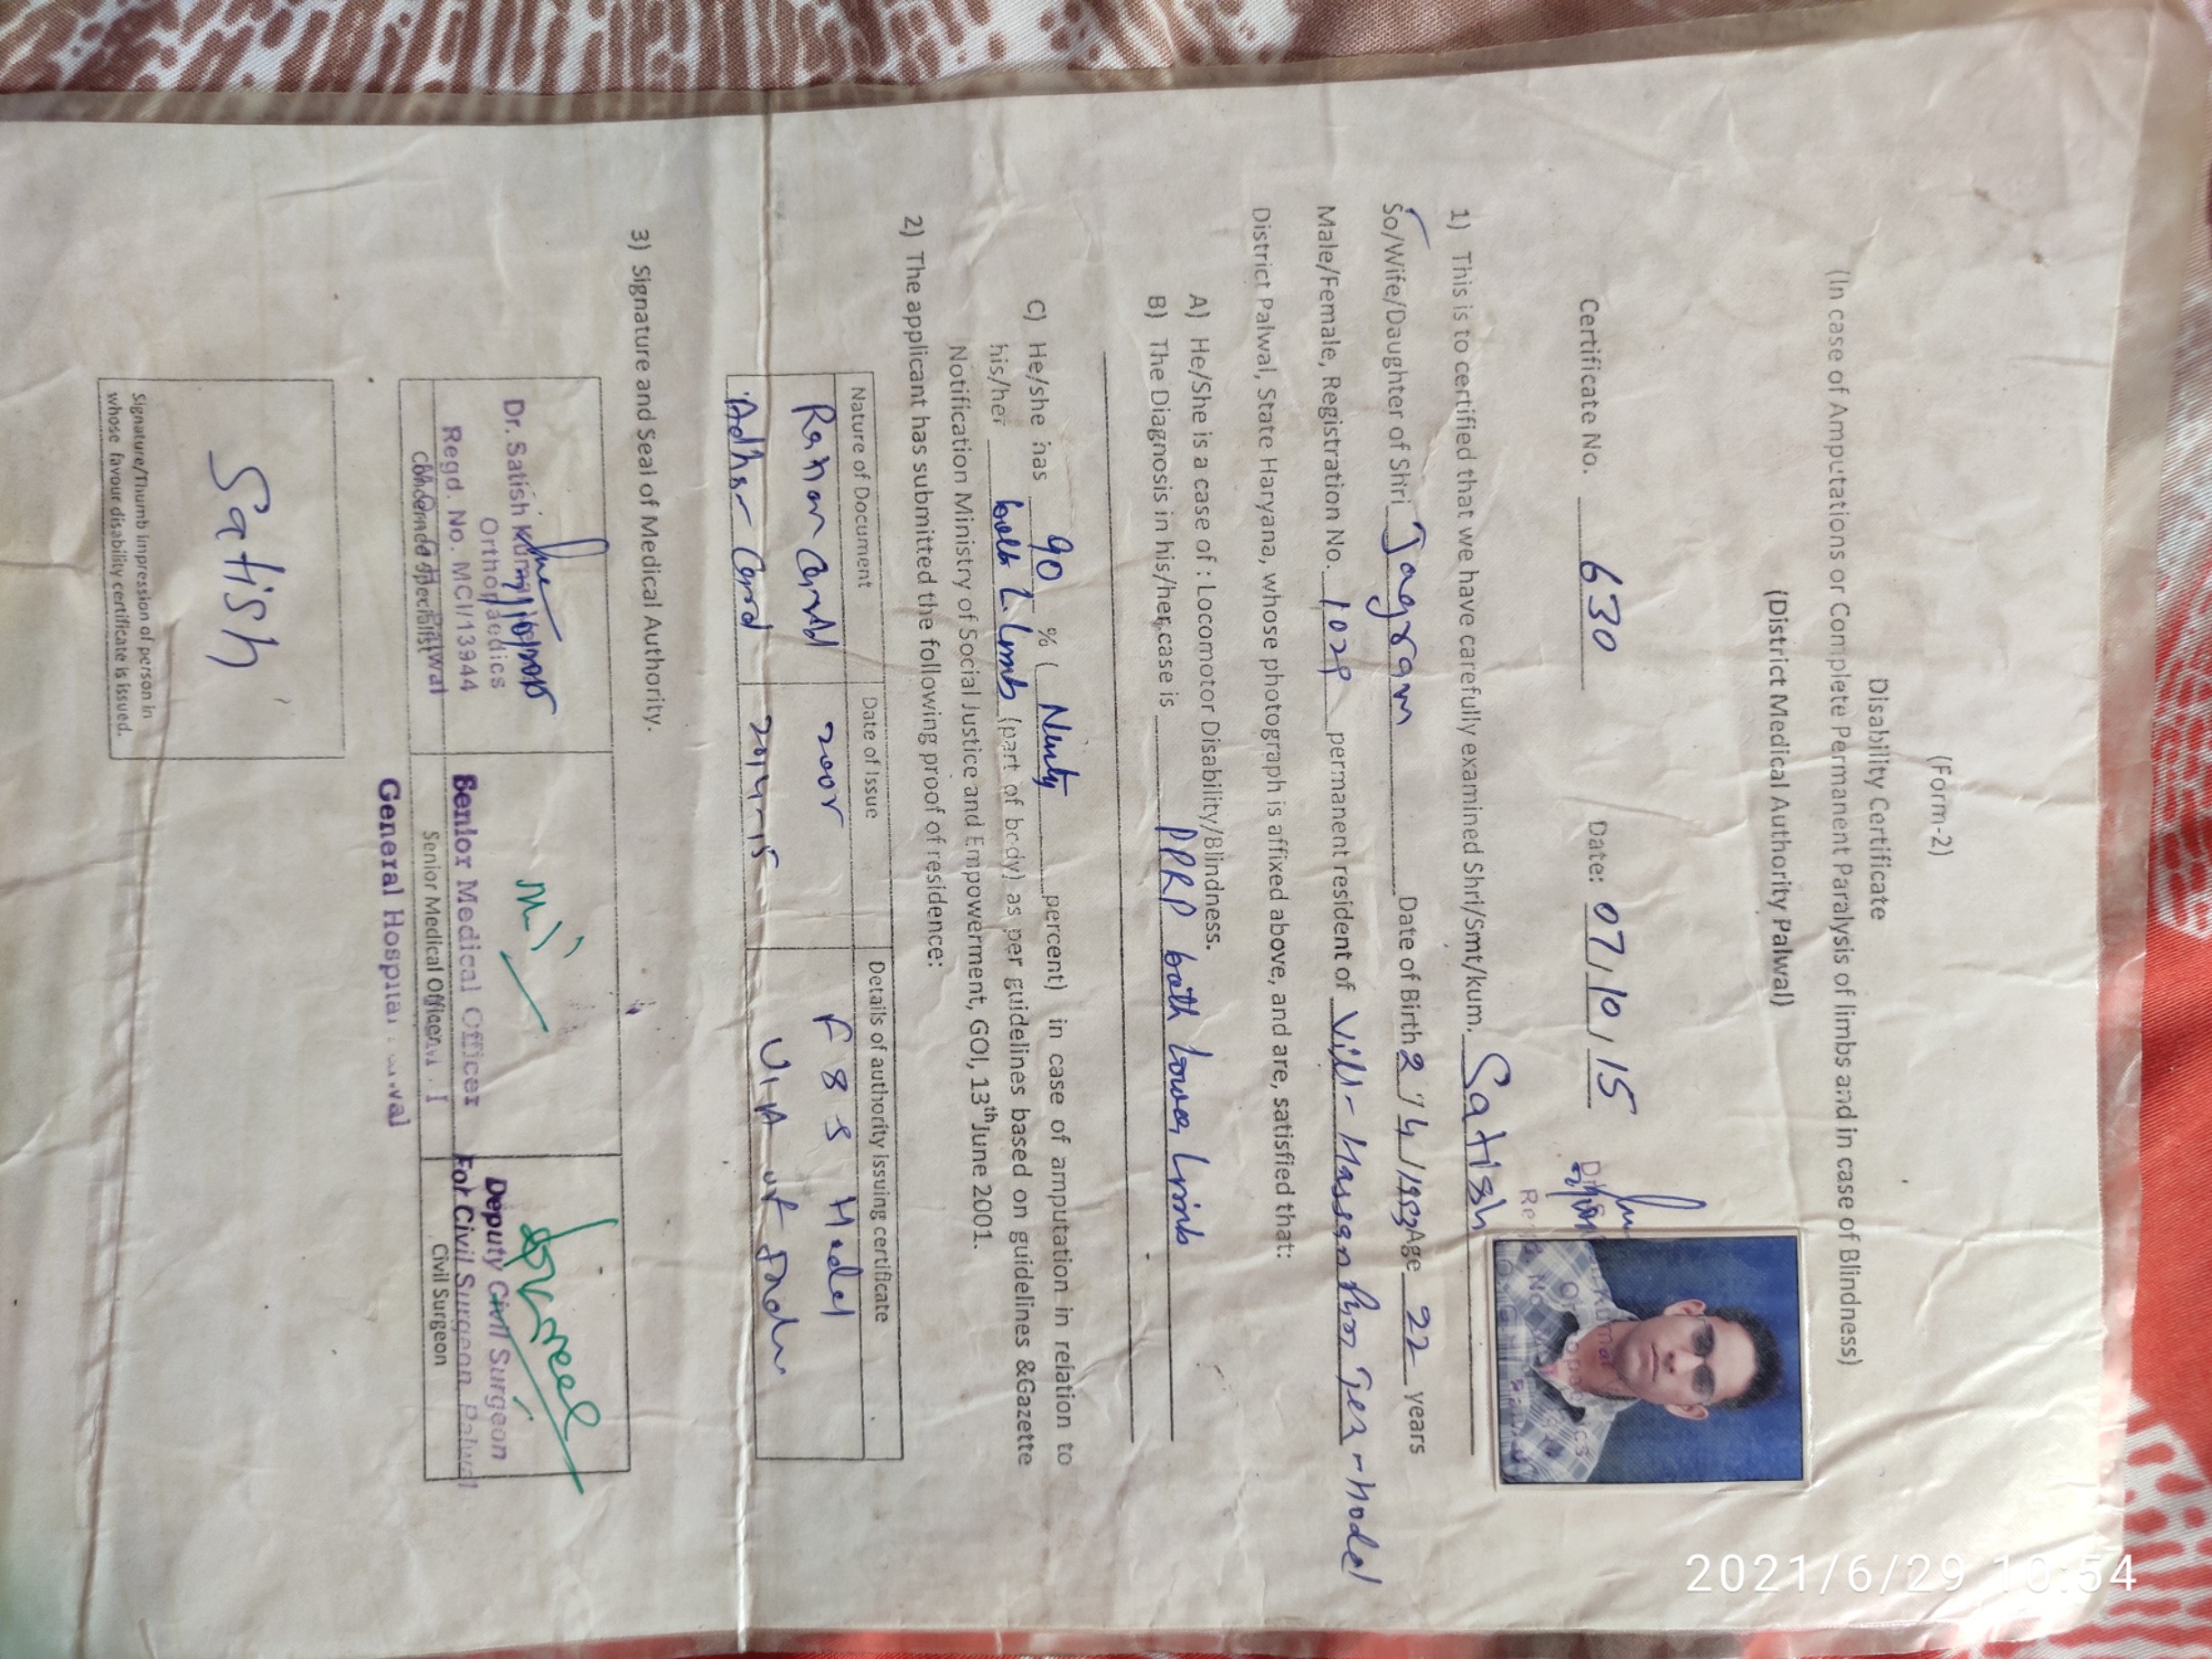 (Form-2)
Disability Certificate
(In case of Amputations or Complete Permanent Paralysis of limbs and in case of Blindness)
(District Medical Authority Palwal)
Certificate No. 630 Date: 07/10/15
1) This is to certified that we have carefully examined Shri/Smt/kum. Satish
So/Wife/Daughter of Shri Jagram Date of Birth 2/4/1993 Age 22 years
Male/Female, Registration No. 1029 permanent resident of Vill- Hassanpur Teh-hodel
District Palwal, State Haryana, whose photograph is affixed above, and are, satisfied that:
A) He/She is a case of : Locomotor Disability/Blindness.
B) The Diagnosis in his/her case is PPRP both lower limb
C) He/she has 90 % ( Ninty percent) in case of amputation in relation to
his/her both L. limb (part of body) as per guidelines based on guidelines &Gazette
Notification Ministry of Social Justice and Empowerment, GOI, 13th June 2001.
2) The applicant has submitted the following proof of residence:
Nature of Document Date of Issue Details of authority issuing certificate
Rahan Card F & S Hodel
Adhar Card
3) Signature and Seal of Medical Authority.
Dr. Satish Kumar
Orthopaedics
Regd. No. MCI/13944
Concerned Specilist
Senior Medical Officer
Senior Medical Officer
General Hospital
Deputy Civil Surgeon
For Civil Surgeon, Palwal
Civil Surgeon
Satish
Signature/Thumb impression of person in
whose favour disability certificate is issued.
2021/6/29 10:54